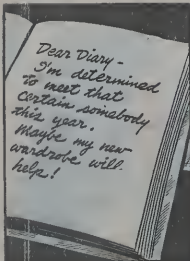 Dear Diary -
I'm determined
to meet that
certain somebody
this year.
Maybe my new
wardrobe will
help!